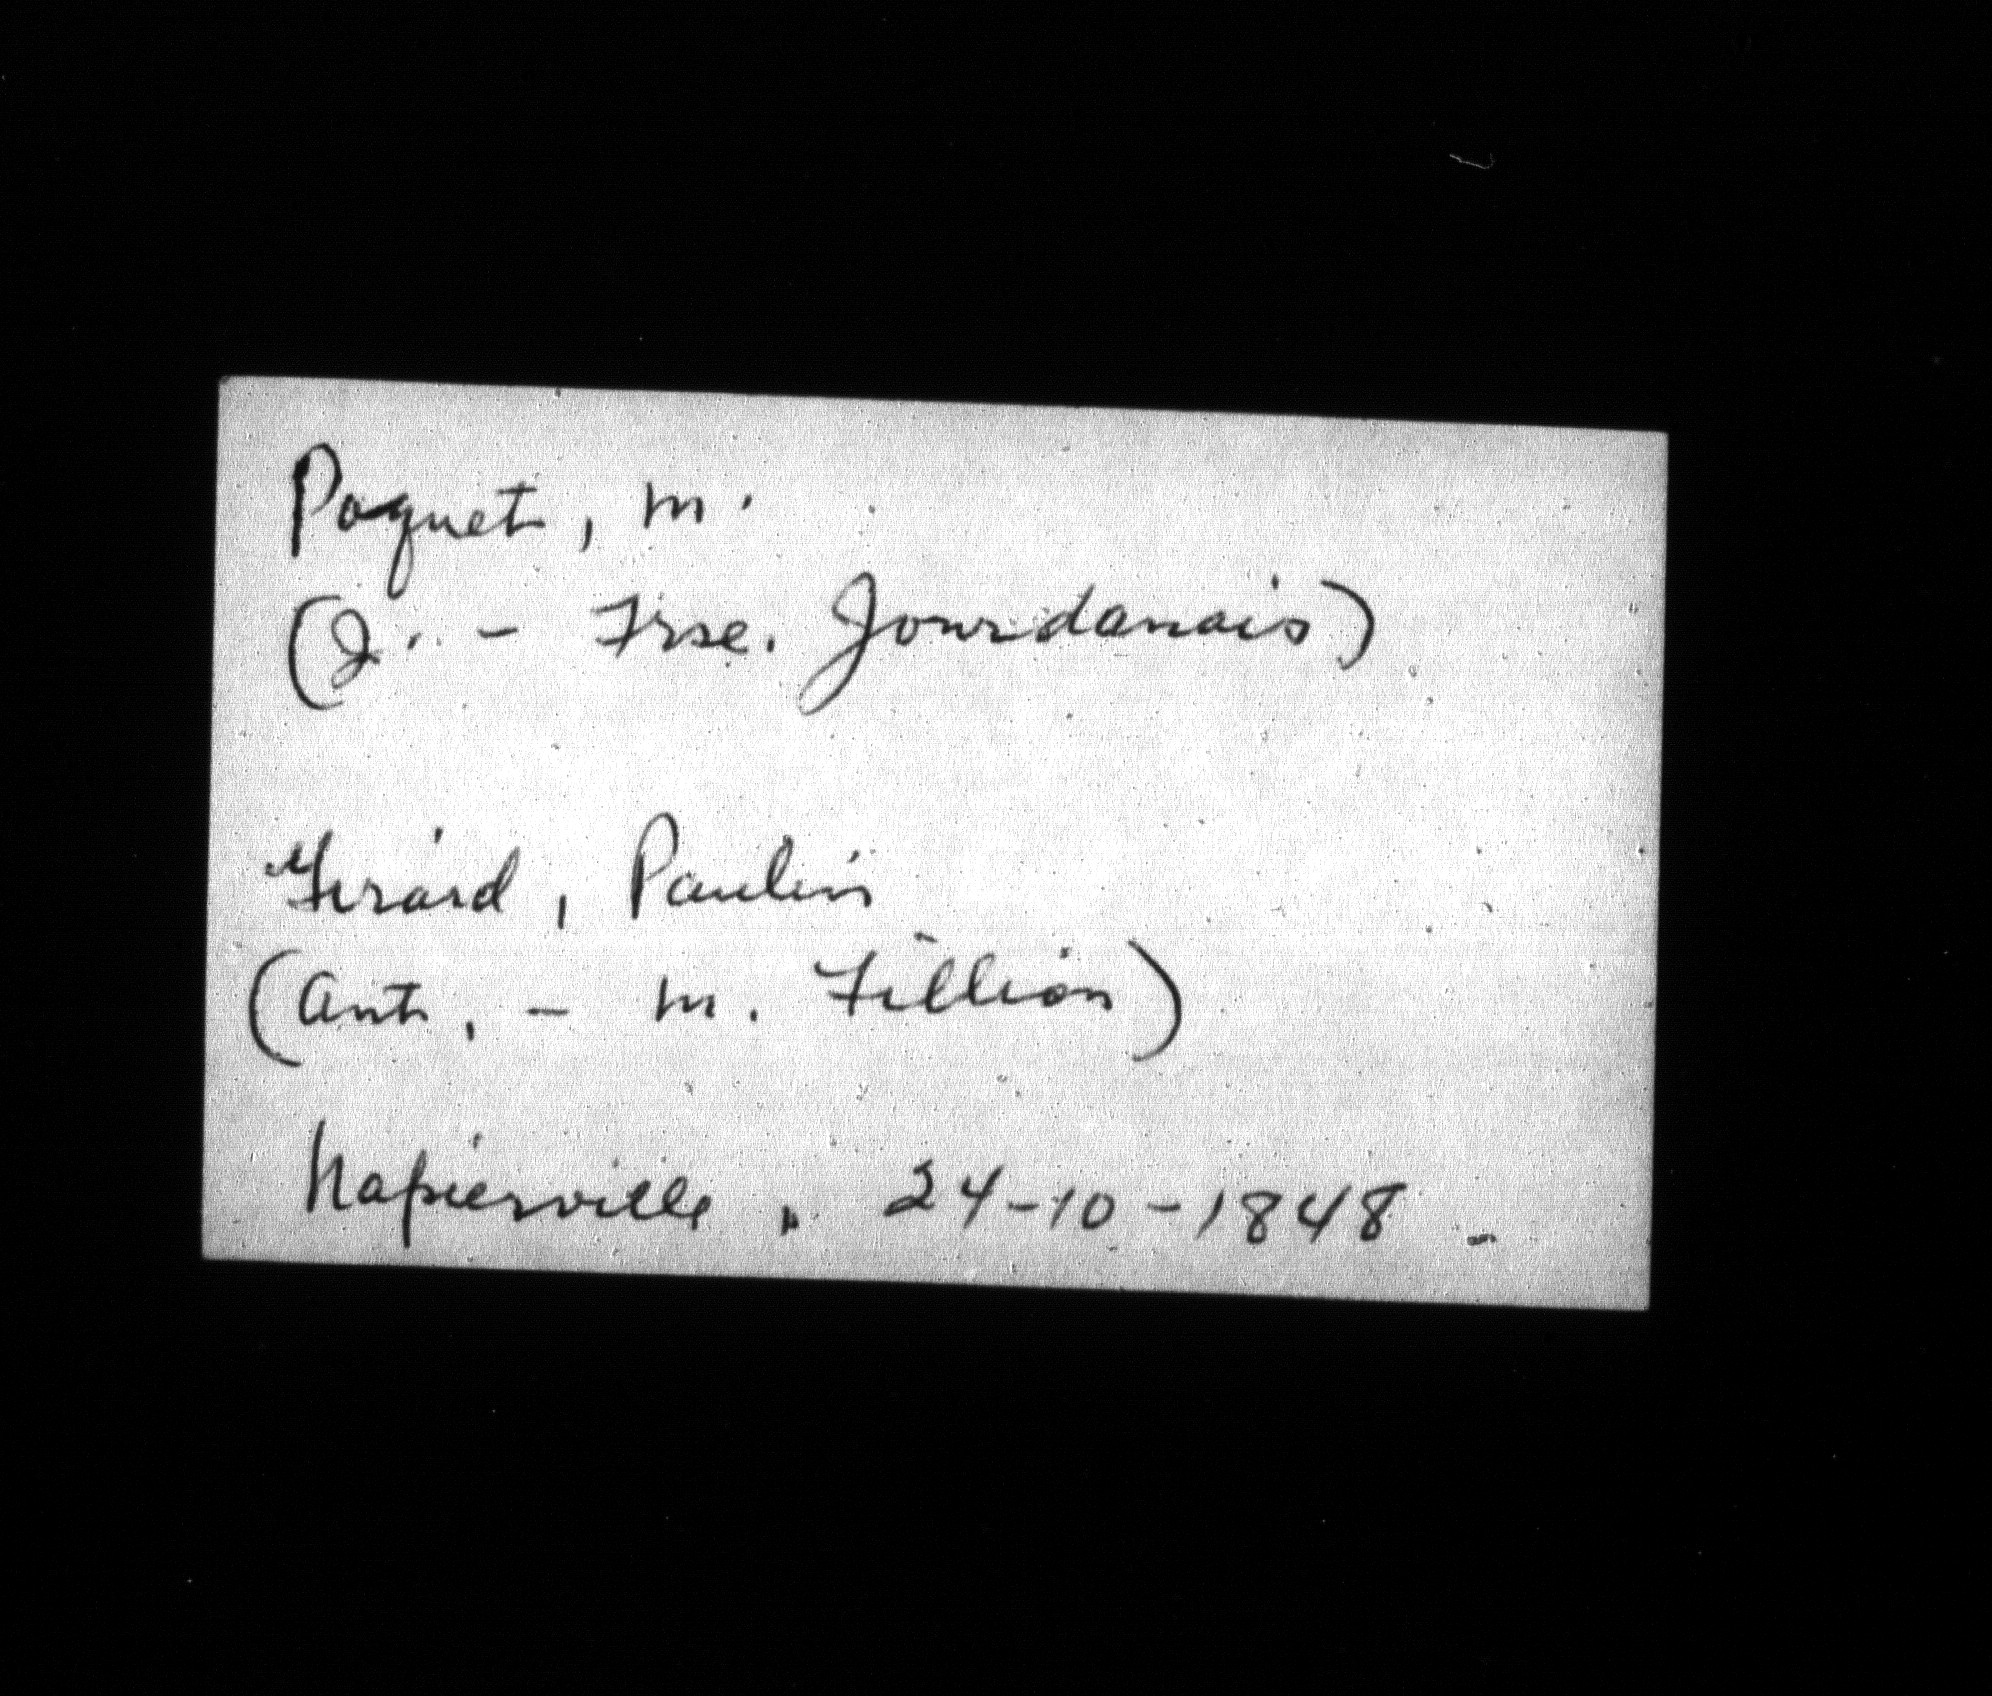 Paquet, M.
(J. - Frse. Jourdanais)
Girard, Paulin
(Ant. - M. Fillion)
Napierville, 24-10-1848 -